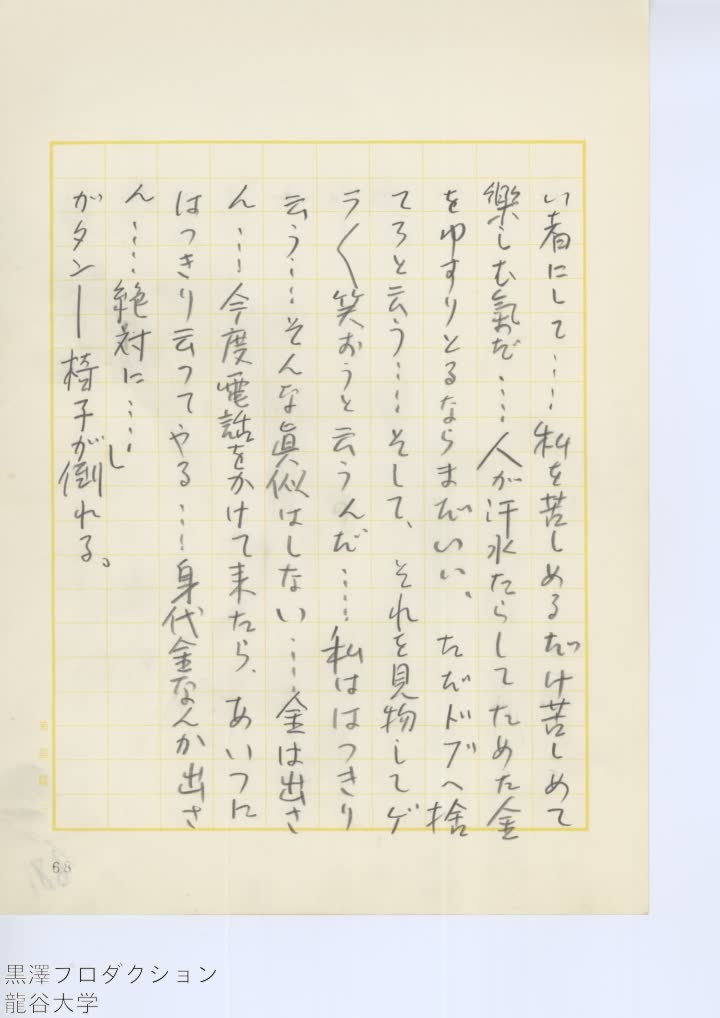 い者にして……私を苦しめるだけ苦しめて
樂しむ氣だ……人が汗水たらしてためた金
をゆすりとるならまだいい、ただドブへ捨
てろと云う……そして、それを見物してゲ
ラ〱笑おうと云うんだ……私ははっきり
云う……そんな眞似はしない……金は出さ
ん……今度電話をかけて来たら、あいつに
はっきり云ってやる……身代金なんか出さ
ん……絶対に……」
ガタン――椅子が倒れる。
68
黒澤プロダクション
龍谷大学